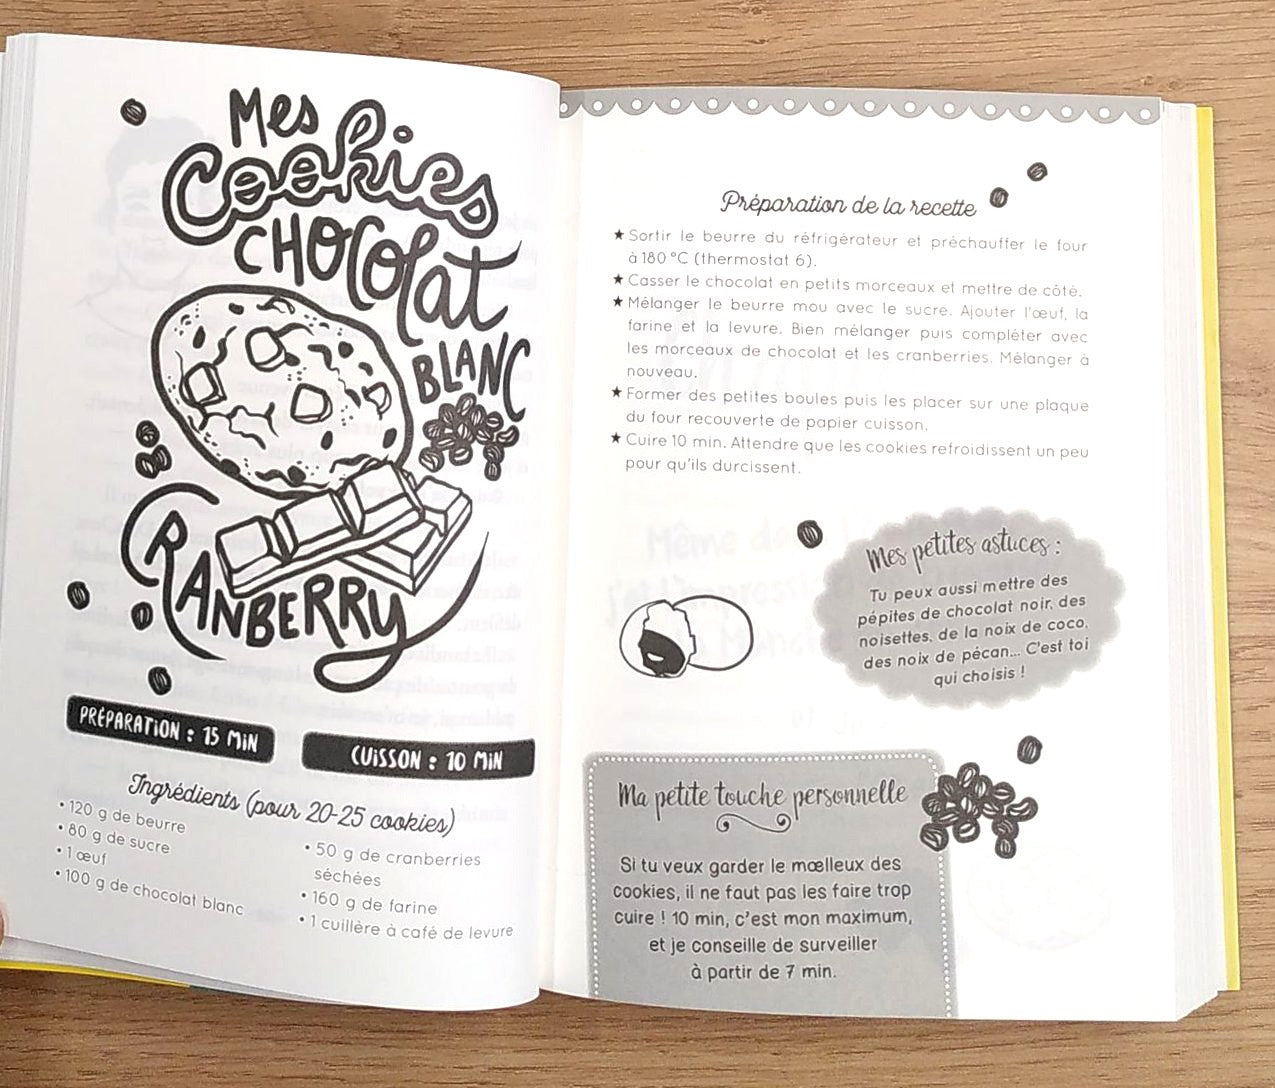 Mes
Cookies
CHOCOlat
BLANC
CRANBERRY
PRÉPARATION : 15 MiN
CUiSSON : 10 MiN
Ingrédients (pour 20-25 cookies)
• 120 g de beurre
• 80 g de sucre
• 1 œuf
• 100 g de chocolat blanc
• 50 g de cranberries
séchées
• 160 g de farine
• 1 cuillère à café de levure
Préparation de la recette
★ Sortir le beurre du réfrigérateur et préchauffer le four
à 180 °C (thermostat 6).
★ Casser le chocolat en petits morceaux et mettre de côté.
★ Mélanger le beurre mou avec le sucre. Ajouter l'œuf, la
farine et la levure. Bien mélanger puis compléter avec
les morceaux de chocolat et les cranberries. Mélanger à
nouveau.
★ Former des petites boules puis les placer sur une plaque
du four recouverte de papier cuisson.
★ Cuire 10 min. Attendre que les cookies refroidissent un peu
pour qu'ils durcissent.
Mes petites astuces :
Tu peux aussi mettre des
pépites de chocolat noir, des
noisettes, de la noix de coco,
des noix de pécan... C'est toi
qui choisis !
Ma petite touche personnelle
Si tu veux garder le mœlleux des
cookies, il ne faut pas les faire trop
cuire ! 10 min, c'est mon maximum,
et je conseille de surveiller
à partir de 7 min.